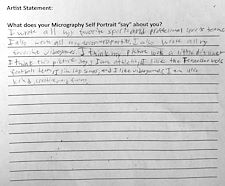 Artist Statement:
What does your Micrography Self Portrait "say" about you?
I wrote all my favorite sports and professional sports teams
I also wrote all my I also wrote all my
favorite videogames. I thinking picture with a little different
I think this picture say I am athletic, I like the Tennessee Vols
football team, I like lap tunes, and I like videogames, I am also
kind, creative, and funny